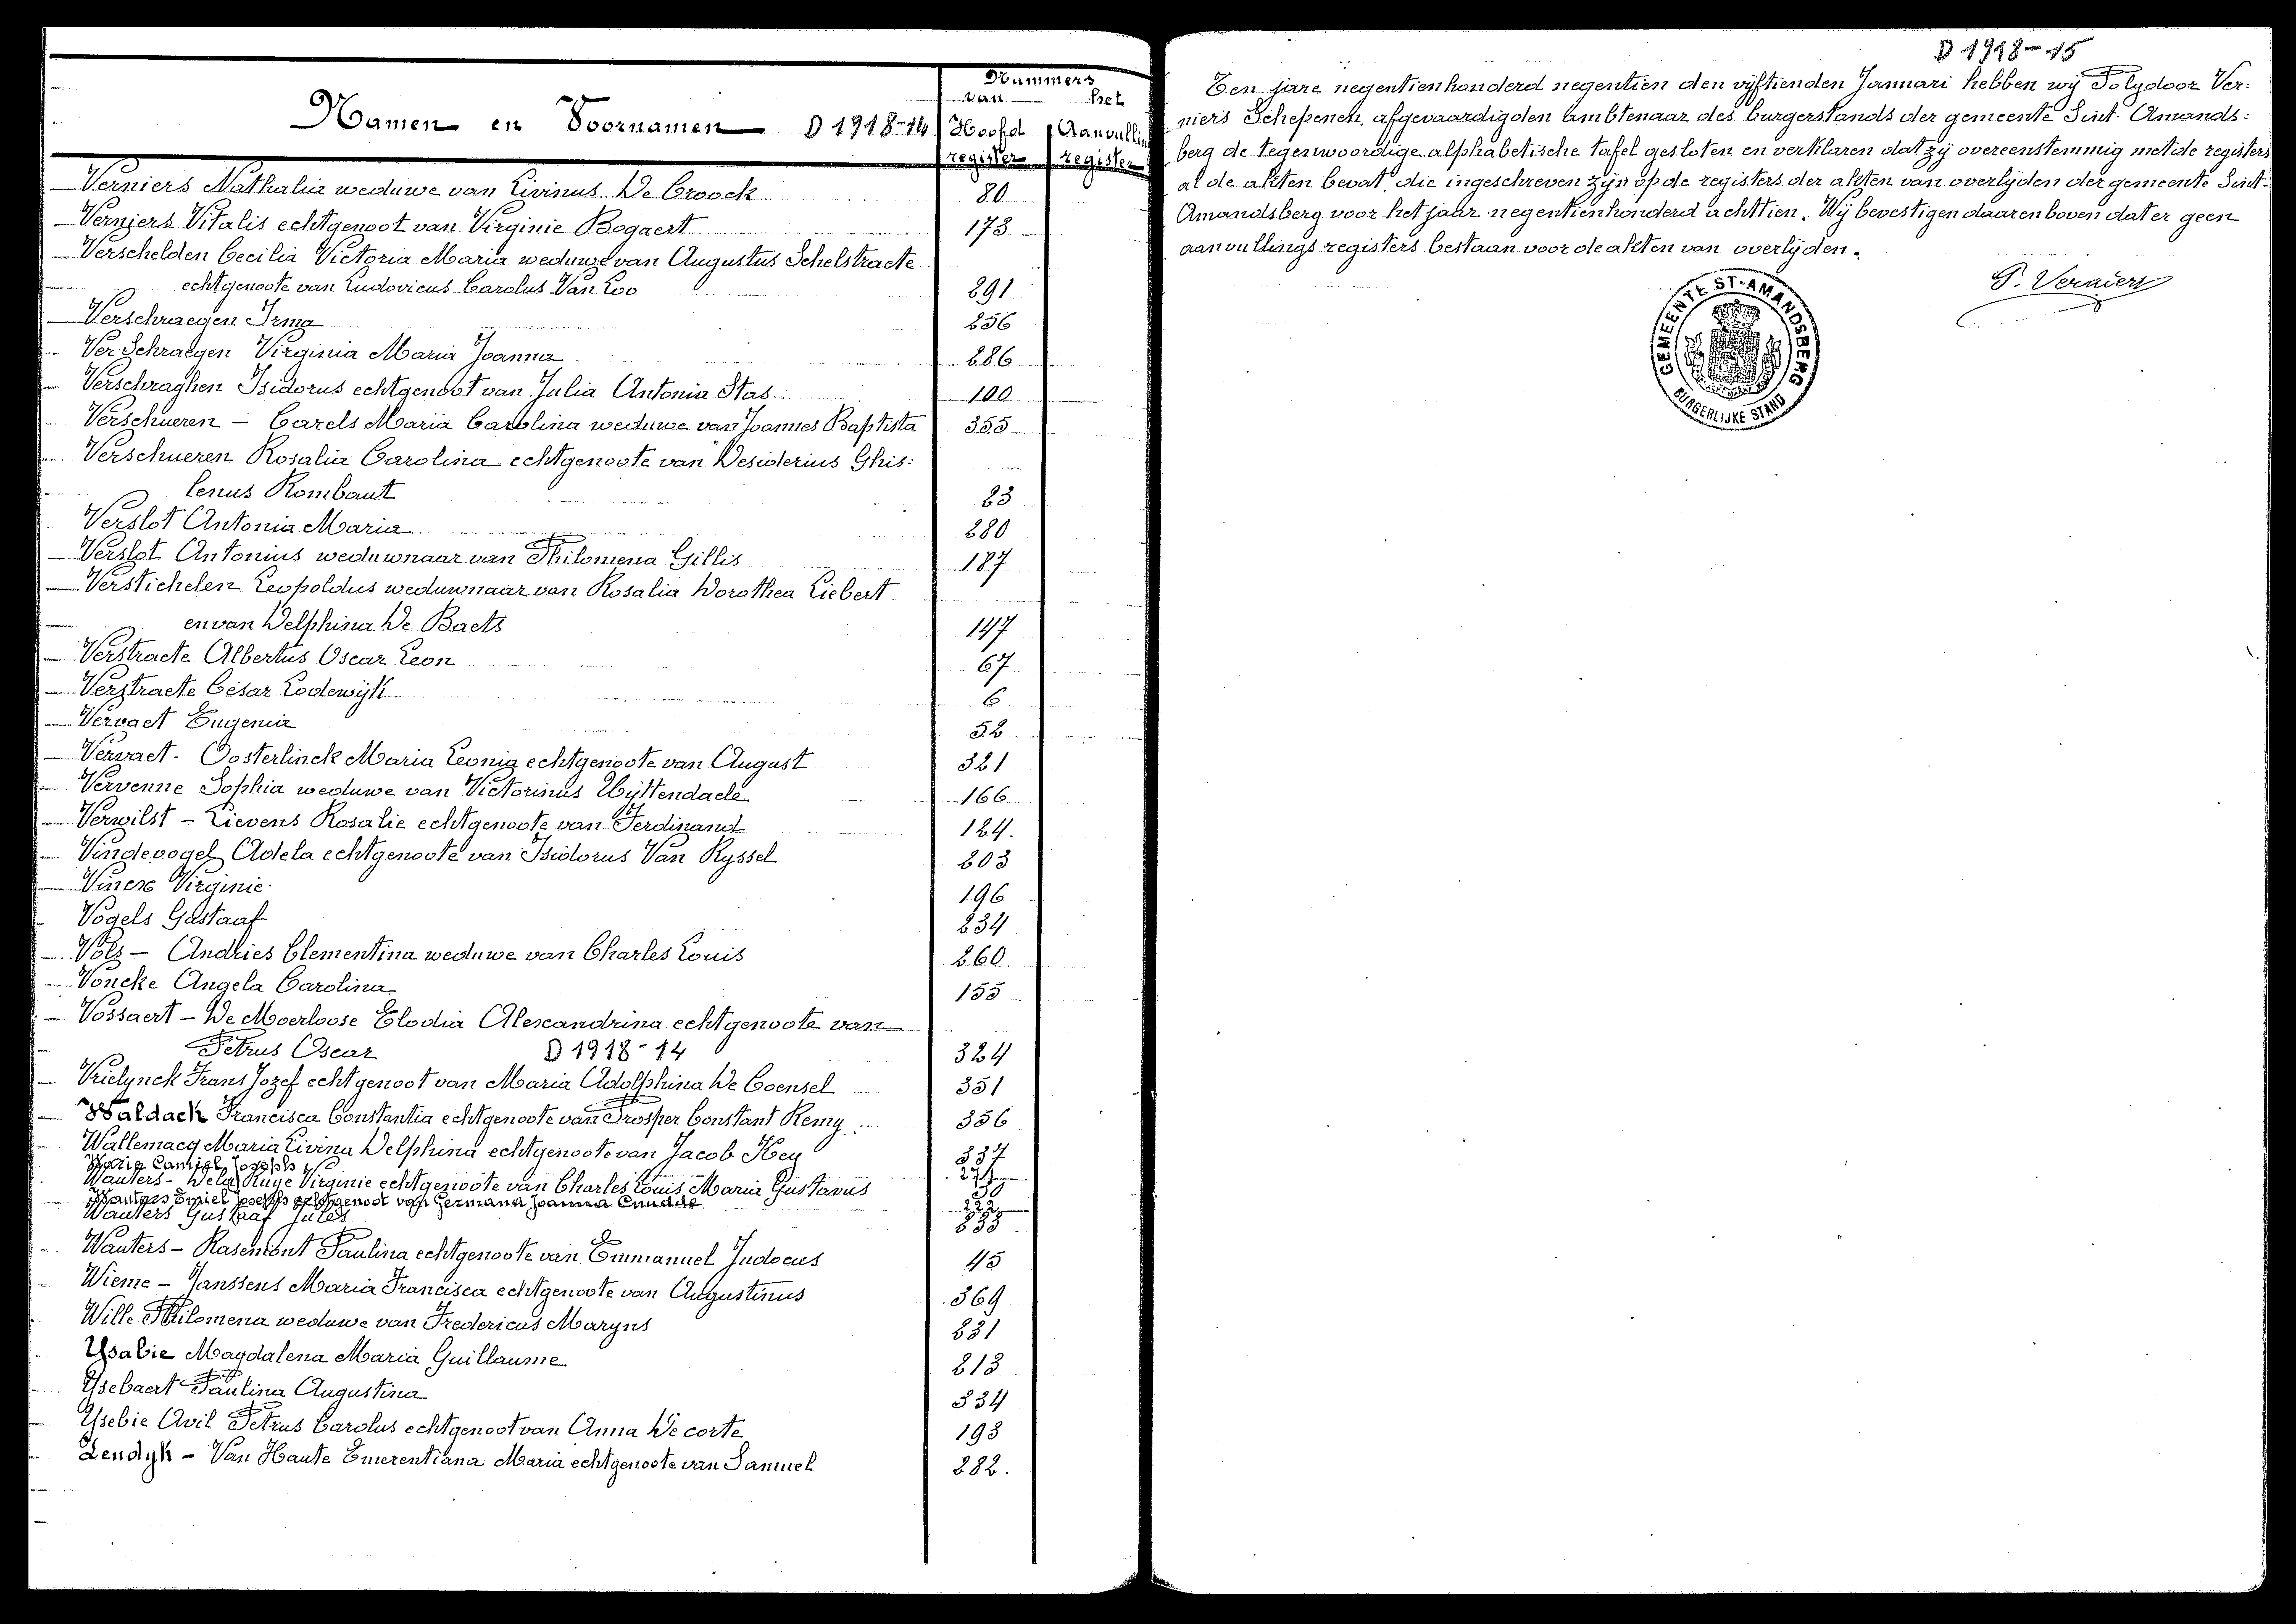 Nummers
van het
Namen en Voornamen D 1918-14 Hoofd Aanvullin
register register
Verniers Nathalia weduwe van Livinus De Croock 80
Verniers Vitalis echtgenoot van Virginie Bogaert 173
Verschelden Cecilia Victoria Maria weduwe van Augustus Schelstraete
echtgenoote van Ludovicus Carolus Van Loo 291
Verschraegen Irma 256
Ver Schraegen Virginia Maria Joanna 286
Verschraghen Isidorus echtgenoot van Julia Antonia Stas 100
Verschueren - Carels Maria Carolina weduwe van Joannes Baptista 355
Verschueren Rosalia Carolina echtgenoote van Desiderius Ghis:
lenus Rombaut 23
Verslot Antonia Maria 280
Verslot Antonius weduwnaar van Philomena Gillis 187
Verstichelen Leopoldus weduwnaar van Rosalia Dorothea Liebert
en van Delphina De Baets 147
Verstraete Albertus Oscar Leon 67
Verstraete César Lodewijk 6
Vervaet Eugenia 52
Vervaet - Oosterlinck Maria Leonia echtgenoote van August 321
Vervenne Sophia weduwe van Victorinus Uyttendaele 166
Verwilst - Lievens Rosalie echtgenoote van Ferdinand 124.
Vindevogel Adela echtgenoote van Isidorus Van Ryssel 203
Virginie 196
Vogels Gustaaf 234
Vols - Andries Clementina weduwe van Charles Louis 260
Voncke Angela Carolina 155
Vossaert - De Moerloose Elodia Alexandrina echtgenoote van
Petrus Oscar D 1918-14 324
Vrielynck Frans Jozef echtgenoot van Maria Adolphina De Coensel 351
Waldack Francisca Constantia echtgenoote van Prosper Constant Remy 356
Wallemacq Maria Livina Delphina echtgenoote van Jacob Key 337
Camiel Joseph
Wauters - Dela Ruye Virginie echtgenoote van Charles Louis Maria Gustavus
Wauters Emiel Joseph echtgenoot van Germana Joanna Cnudde
Wauters Gustaaf Jules 235
Wauters - Rasemont Paulina echtgenoote van Emmanuel Judocus 45
Wieme - Janssens Maria Francisca echtgenoote van Augustinus 369
Wille Philomena weduwe van Fredericus Maryns 231
Ysabie Magdalena Maria Guillaume 213
Ysebaert Paulina Augustina 334
Ysebie Avil Petrus Carolus echtgenoot van Anna De corte 193
Zendyk - Van Haute Emerentiana Maria echtgenoote van Samuel 282.
D 1918-15
Ten jare negentienhonderd negentien den vijftienden Januari hebben wij Polydoor Ver:
niers Schepenen, afgevaardigden ambtenaar des burgerstands der gemeente Sint-Amands:
berg de tegenwoordige alphabetische tafel gesloten en verklaren dat zij overeenstemmig met de registers
al de akten bevat, die ingeschreven zijn op de registers der akten van overlijden der gemeente Sint-
Amandsberg voor het jaar negentienhonderd achttien. Wij bevestigen daarenboven dat er geen
aanvullingsregisters bestaan voor de akten van overlijden.
P. Verniers
GEMEENTE ST-AMANDSBERG
BURGERLIJKE STAND